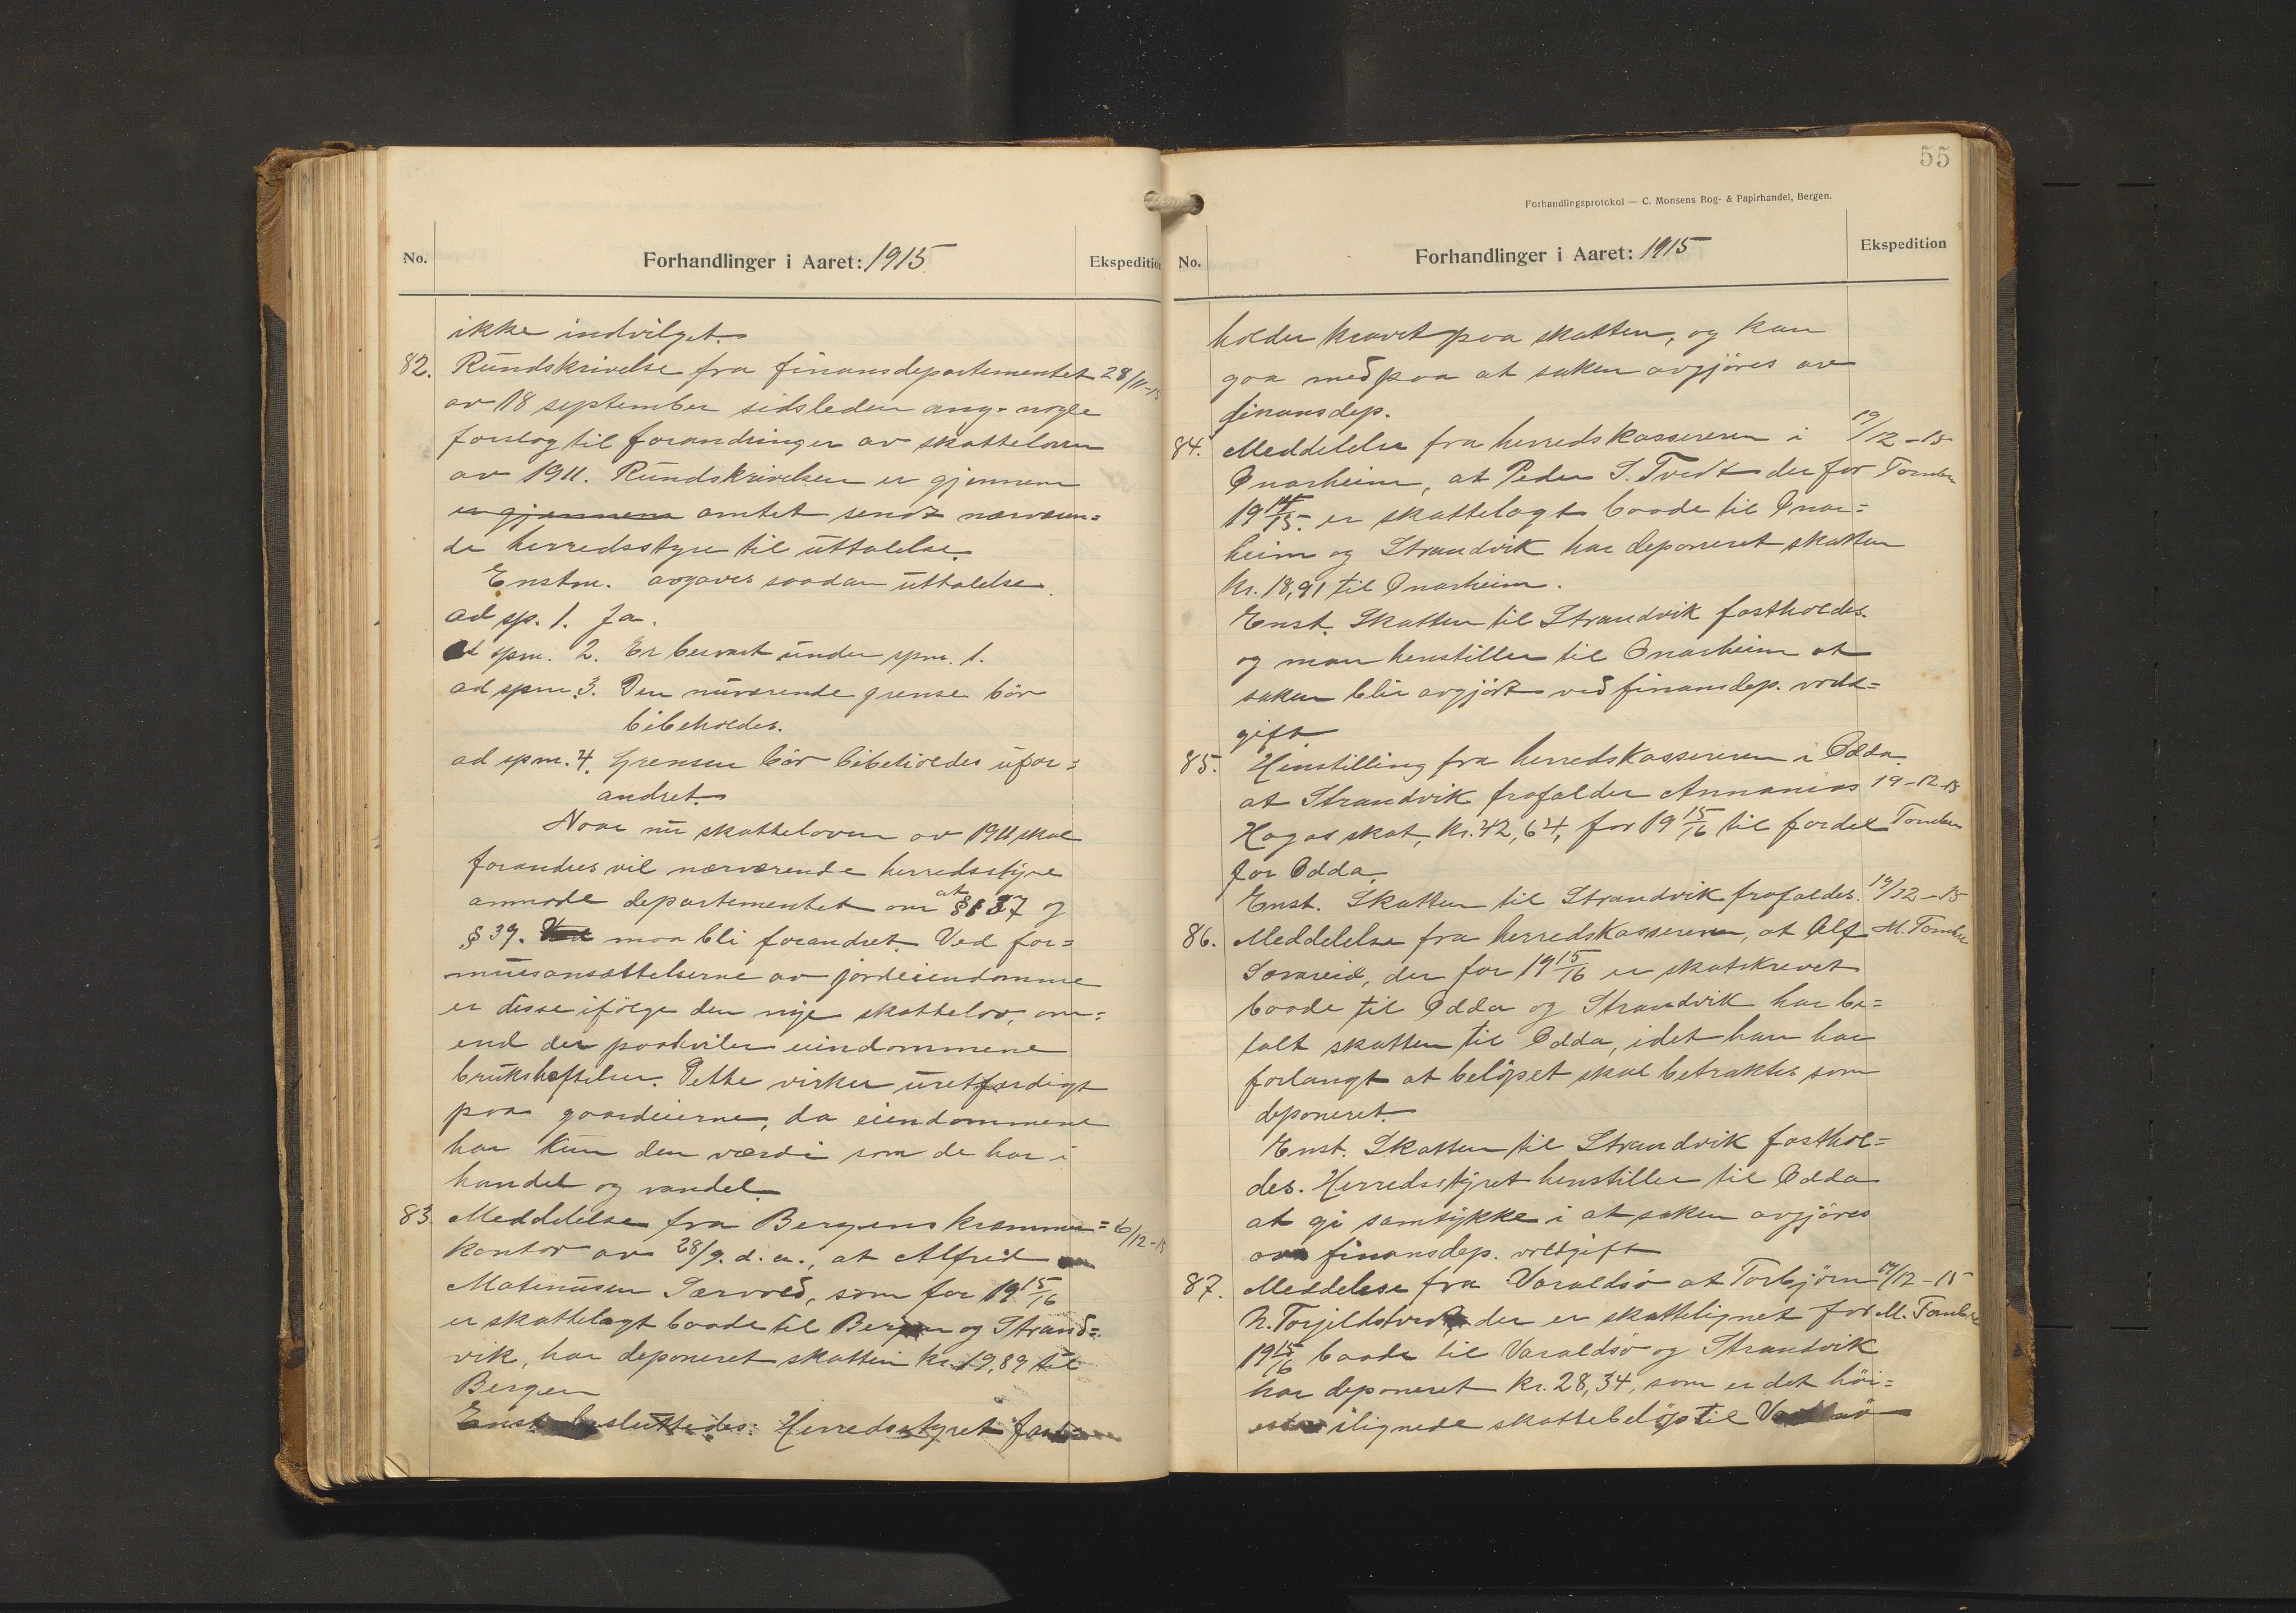 No.
Forhandlinger i Aaret: 1915
Ekspedition
ikke indvilget.
82. Rundskrivelse fra finansdepartementet 28/11-15
av 18 september sidsleden ang. nogle
forslag til forandringer av skatteloven
av 1911. Rundskrivelsen er gjennem
er gjennem amtet sendt nærværen=
de herredsstyre til uttalelse.
Enstm. avgaves saadan uttalelse.
ad sp. 1. Ja.
ad spm. 2. Er besvart under spm. 1.
ad spm. 3. Den nuværende grense bör
bibeholdes.
ad spm. 4. Grensen bör bibeholdes ufor=
andret.
Naar nu skatteloven av 1911 skal
forandres vil nærværende herredsstyre
anmode departementet om at § 37 og
§ 39. maa bli forandret. Ved for=
muesansættelserne av jordeiendomme
er disse ifölge den nye skattelov, om=
end der paahviler eiendommene
bruksheftelser. Dette virker uretfærdigt
paa gaardeierne, da eiendommene
har kun den værdi som de har i
handel og vandel.
83. Meddelelse fra Bergens kæmner= 6/12-15
kontor av 28/9. d. a., at Alfred
Matinusen Særvold, som for 19 15/16
er skattelagt baade til Bergen og Strand=
vik, har deponeret skatten kr. 19,89 til
Bergen
Enst. besluttedes: Herredsstyret fast=
55
Forhandlingsprotokol — C. Monsens Bog- & Papirhandel, Bergen.
No.
Forhandlinger i Aaret: 1915
Ekspedition
holder kravet paa skatten, og kan
gaa med paa at saken avgjöres av
finansdep.
84. Meddelelse fra herredskassereren i 19/12-15
Ønarheim, at Peder S. Tvedt der for
19 14/15. er skattelagt baade til Ønar=
heim og Strandvik har deponeret skatten
kr. 18,91 til Ønarheim.
Enst. Skatten til Strandvik fastholdes.
og man henstiller til Ønarheim at
saken blir avgjört ved finansdep. vold=
gift
85. Henstilling fra herredskassereren i Odda
at Strandvik frafalder Annanias 19-12-15
Hagas skat, kr. 42,64, for 19 15/16 til fordel
for Odda.
Enst. Skatten til Strandvik frafaldes. 19/12-15
86. Meddelelse fra herredskassereren, at Alf
Sævareid, der for 19 15/16 er skatskrevet
baade til Odda og Strandvik har be=
talt skatten til Odda, idet han har
forlangt at belöpet skal betraktes som
deponeret.
Enst. Skatten til Strandvik fasthol=
des. Herredsstyret henstiller til Odda
at gi samtykke i at saken avgjöres
av finansdep. voldgift
87. Meddelese fra Varaldsö at Torbjörn 19/12-15
N. der er skattelignet for
19 15/16 baade til Varaldsö og Strandvik
har deponeret kr. 28,34, som er det höi=
este ilignede skattebelöp til